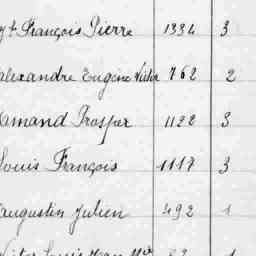 François Pierre 1334 3
Alexandre Eugène Victor 762 2
Amand Prosper 1128 3
Louis François 1117 3
Augustin Julien 492 1